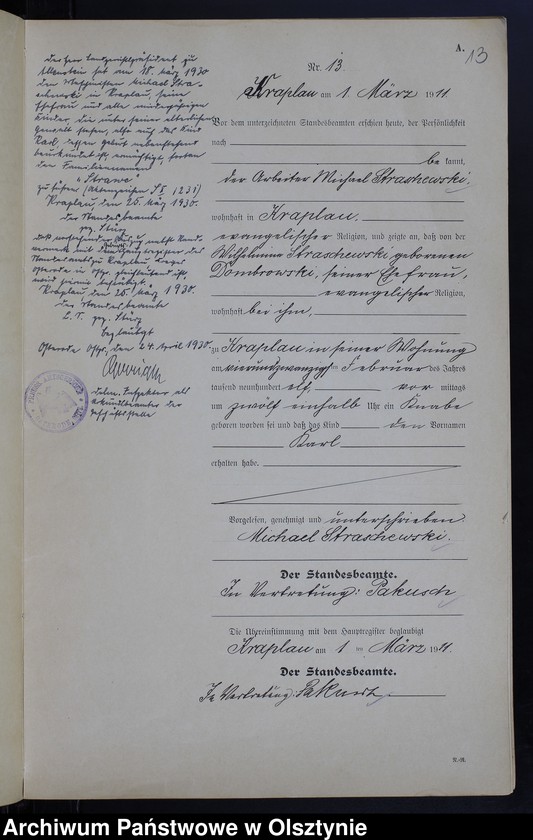 A.
13
Nr. 13.
Kraplau am 1 März 1911
Vor dem unterzeichneten Standesbeamten erschien heute, der Persönlichkeit
nach
be kannt,
der Arbeiter Michael Straschewski,
wohnhaft in Kraplau,
evangelischer Religion, und zeigte an, daß von der
Wilhelmina Straschewski, geborenen
Dombrowski, seiner Ehefrau,
evangelischer Religion,
wohnhaft bei ihm,
zu Kraplau in seiner Wohnung
am vierundzwanzigsten Februar des Jahres
tausend neunhundert elf, vor mittags
um zwölf einhalb Uhr ein Knabe
geboren worden sei und daß das Kind den Vornamen
Karl
erhalten habe.
Vorgelesen, genehmigt und unterschrieben
Michael Straschewski.
Der Standesbeamte.
In Vertretung: Pakusch
Die Übereinstimmung mit dem Hauptregister beglaubigt
Kraplau am 1 ten März 1911.
Der Standesbeamte.
In Vertretung: Pakusch
Der Herr Landgerichtspräsident zu
Allenstein hat am 18. März 1930
den Michael Stra-
schewski in Kraplau, seine
Ehefrau und alle minderjährigen
Kinder, die unter seiner elterlichen
Gewalt stehen, also auch das Kind
Karl, dessen Geburt nebenstehend
beurkundet ist, ermächtigt, fortan
den Familiennamen
"Strawe"
zu führen (Aktenzeichen
Kraplau, den 25. März 1930.
Der Standesbeamte
gez. Stürz
Daß vorstehender Auszug nebst Rand-
vermerk mit dem
Standesamts zu Kraplau Kreis
Osterode in Ostpr. gleichlautend ist,
wird hiermit bestätigt.
Kraplau, den 25. März 1930.
Der Standesbeamte
L. S. gez. Stürz
Beglaubigt
Osterode Ostpr., den 24. April 1930.
als
Urkundsbeamter der
Geschäftsstelle
Archiwum Państwowe w Olsztynie